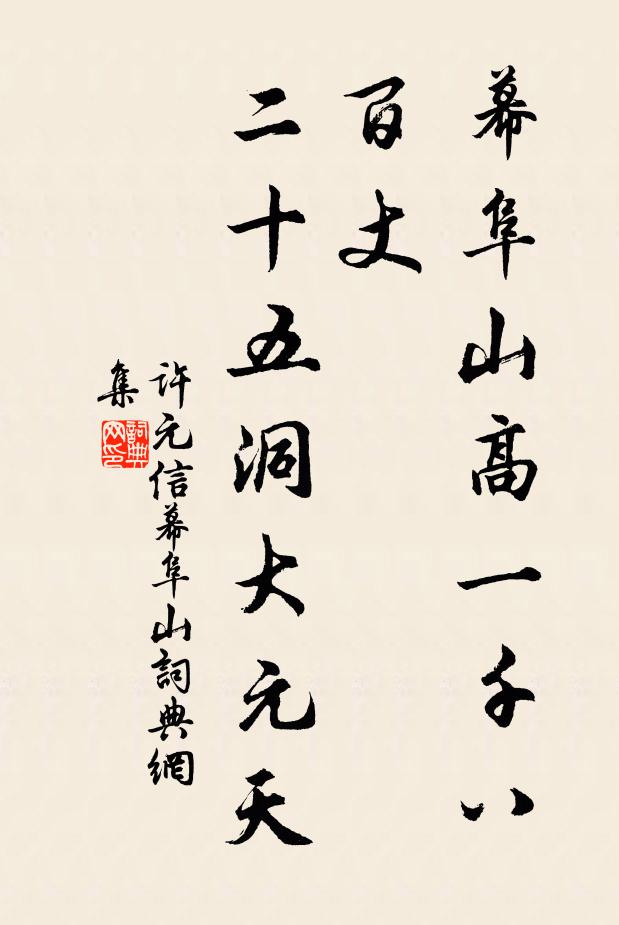 幕阜山高一千八
百丈
二十五洞大元天
许元信幕阜山詞典網
集
詞典
网印